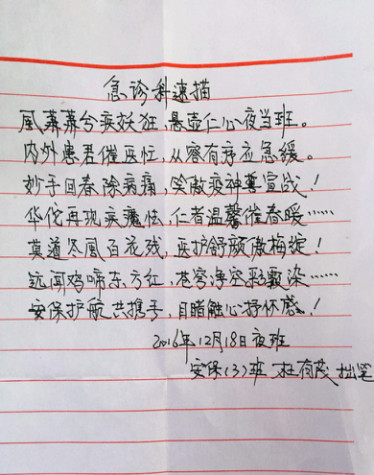 急诊科速描
風萧萧兮疾妖狂，悬壶仁心夜当班。
内外患君催医忙，从容有序应急缓。
妙手回春除病痛，笑敵疫神豈宣战！
华佗再现疾魔怯，仁者温馨催春暖……
莫道冬風百花残，医护舒颜傲梅绽！
远闻鸡啼东方红，苍穹净空彩霞染……
安保护航共携手，目睹触心抒怀感！
2016年12月18日夜班
安保(3)班 杜有茂 拙笔